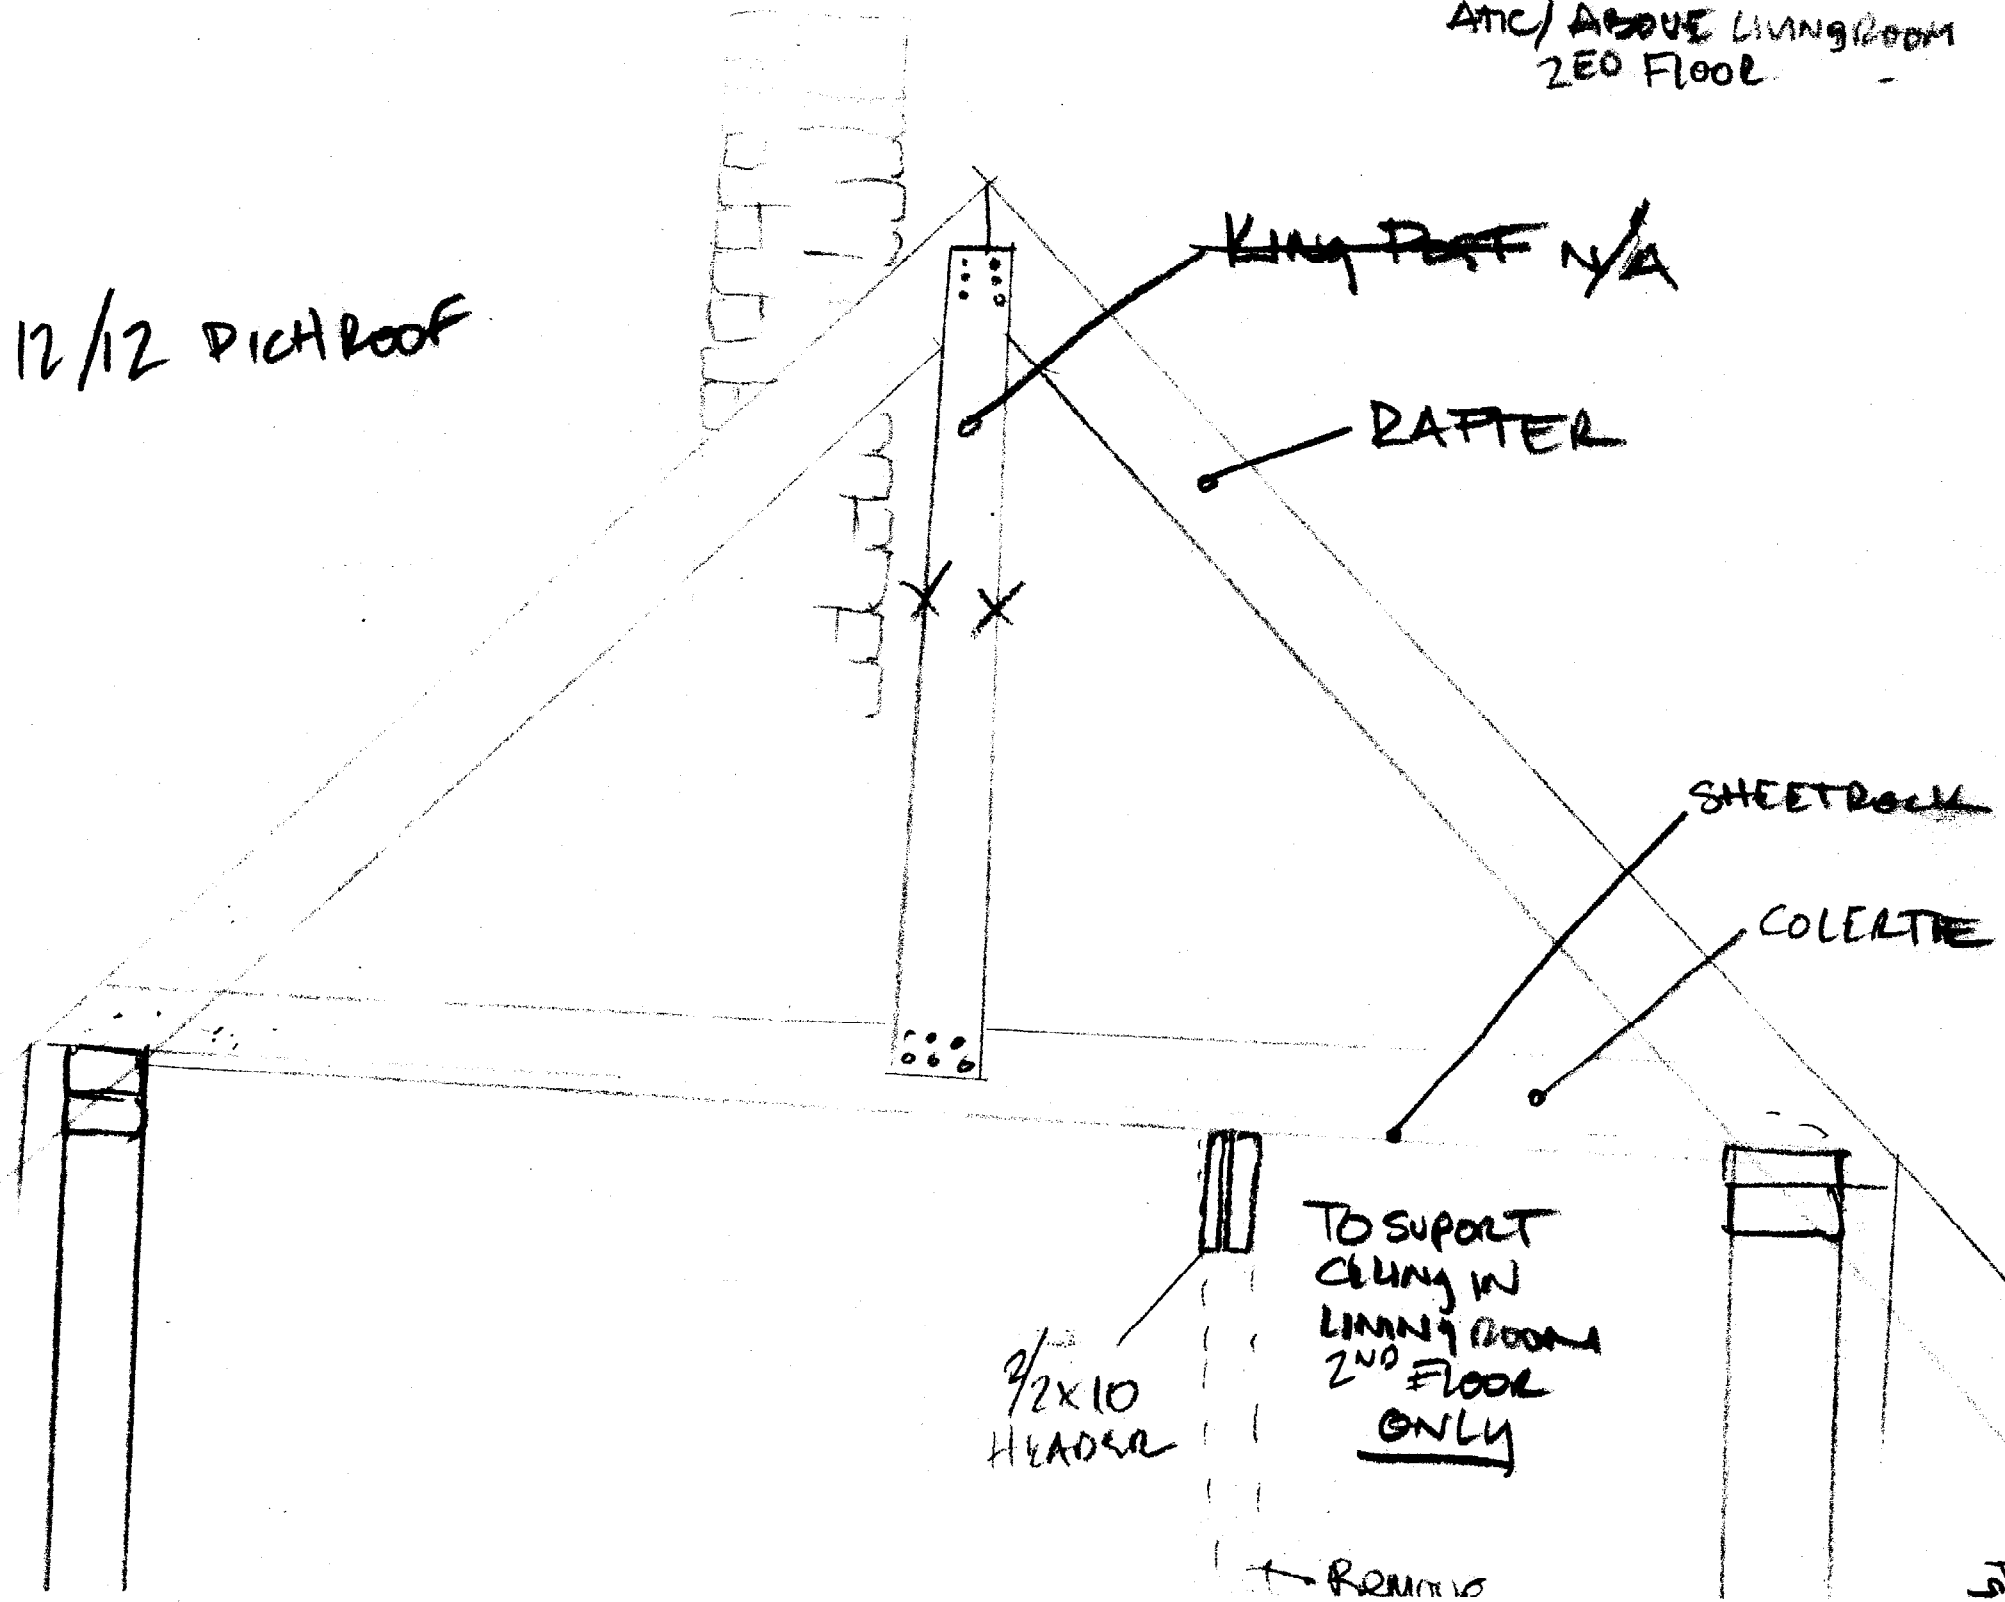 ATTIC/ ABOVE LIVINGROOM
2ED FLOOR
KING POST N/A
12/12 PICH ROOF
RAFTER
SHEETROCK
COLERTIE
TO SUPORT
CEILING IN
LIVINGROOM
2ND FLOOR
ONLY
2/2x10
HEADER
REMOVE